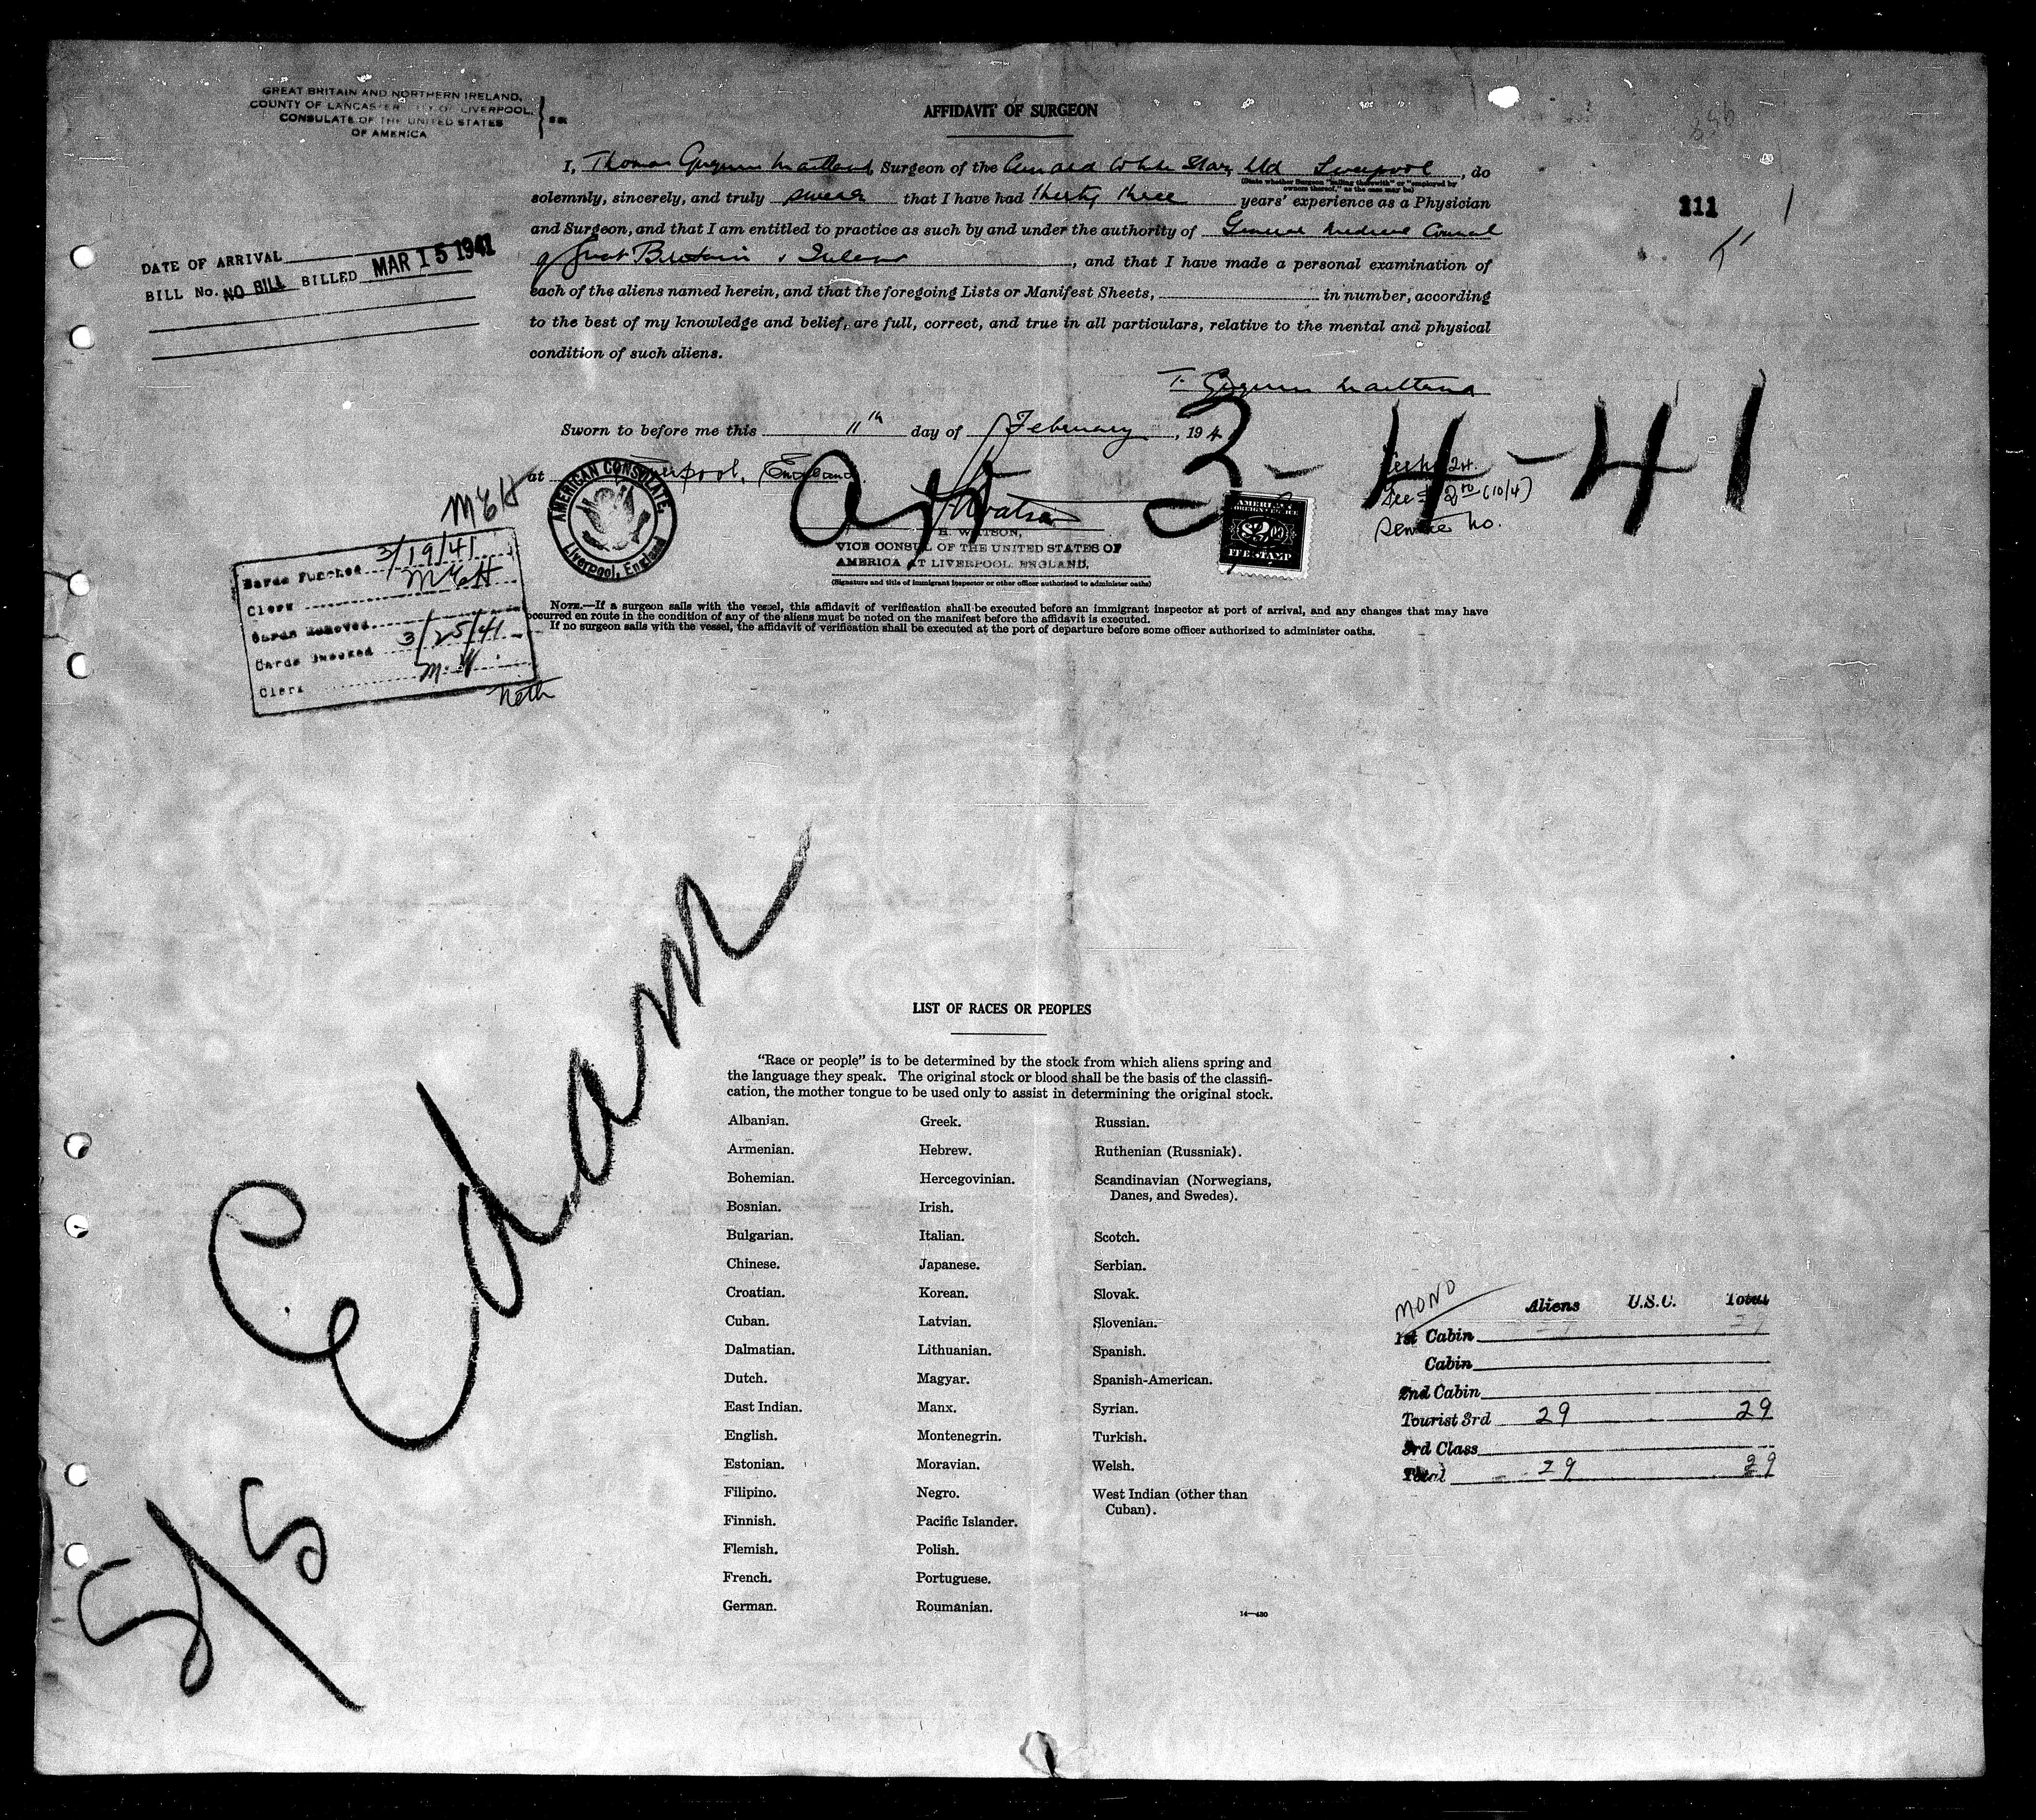 GREAT BRITAIN AND NORTHERN IRELAND,
COUNTY OF LANCASTER CITY OF LIVERPOOL,
CONSULATE OF THE UNITED STATES
OF AMERICA
} SS.
AFFIDAVIT OF SURGEON
I, Thomas Maitland, Surgeon of the Cunard White Star Ltd Liverpool, do
(State whether Surgeon "sailing therewith" or "employed by owners thereof," as the case may be)
solemnly, sincerely, and truly swear that I have had thirty three years' experience as a Physician
and Surgeon, and that I am entitled to practice as such by and under the authority of General Medical Council
of Great Britain & Ireland, and that I have made a personal examination of
each of the aliens named herein, and that the foregoing Lists or Manifest Sheets, in number, according
to the best of my knowledge and belief, are full, correct, and true in all particulars, relative to the mental and physical
condition of such aliens.
111
DATE OF ARRIVAL
BILL No. NO BILL BILLED MAR 15 1941
T. Maitland
Sworn to before me this 11th day of February, 194
at Liverpool, England.
3-4-41
AMERICAN CONSULATE,
Liverpool, England
H Watson
H. WATSON,
VICE CONSUL OF THE UNITED STATES OF
AMERICA AT LIVERPOOL, ENGLAND.
(Signature and title of immigrant inspector or other officer authorized to administer oaths)
AMERICAN
FOREIGN SERVICE
$2.00
FEE STAMP
Service No.
Cards Punched 3/19/41
Clerk
Cards Removed
Cards Checked 3/25/41
Clerk M.H.
Neth
NOTE.—If a surgeon sails with the vessel, this affidavit of verification shall be executed before an immigrant inspector at port of arrival, and any changes that may have
occurred en route in the condition of any of the aliens must be noted on the manifest before the affidavit is executed.
If no surgeon sails with the vessel, the affidavit of verification shall be executed at the port of departure before some officer authorized to administer oaths.
S/S Edam
LIST OF RACES OR PEOPLES
"Race or people" is to be determined by the stock from which aliens spring and
the language they speak. The original stock or blood shall be the basis of the classifi-
cation, the mother tongue to be used only to assist in determining the original stock.
Albanian.
Armenian.
Bohemian.
Bosnian.
Bulgarian.
Chinese.
Croatian.
Cuban.
Dalmatian.
Dutch.
East Indian.
English.
Estonian.
Filipino.
Finnish.
Flemish.
French.
German.
Greek.
Hebrew.
Hercegovinian.
Irish.
Italian.
Japanese.
Korean.
Latvian.
Lithuanian.
Magyar.
Manx.
Montenegrin.
Moravian.
Negro.
Pacific Islander.
Polish.
Portuguese.
Roumanian.
Russian.
Ruthenian (Russniak).
Scandinavian (Norwegians,
Danes, and Swedes).
Scotch.
Serbian.
Slovak.
Slovenian.
Spanish.
Spanish-American.
Syrian.
Turkish.
Welsh.
West Indian (other than
Cuban).
14—430
MONO
Aliens U.S.C. Total
1st Cabin
Cabin
2nd Cabin
Tourist 3rd 29 29
3rd Class
Total 29 29